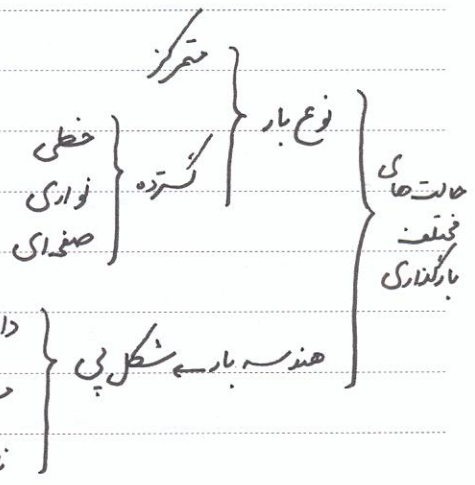 حالت‌های
مختلف
بارگذاری
نوع بار
متمرکز
گسترده
خطی
نواری
صفحه‌ای
هندسه بار ← شکل پی